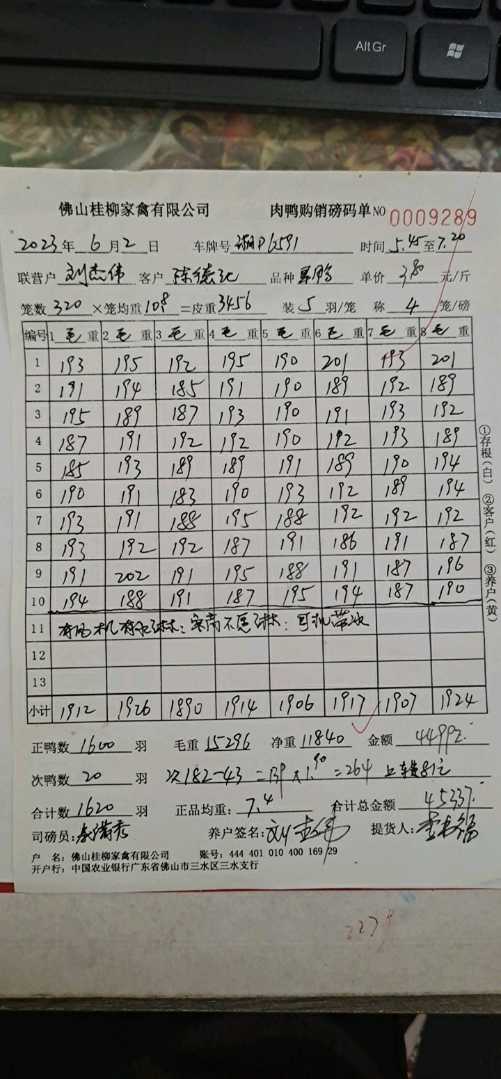 Alt Gr
佛山桂柳家禽有限公司 肉鸭购销磅码单 NO 0009289
2023年 6月2日 车牌号 时间 5.45至7.20
联营户 刘杰伟 客户 品种 单价 3.80 元/斤
笼数 320 ×笼均重 10.8 =皮重 3456 装 5 羽/笼 称 4 笼/磅
编号 1 毛 重 2 毛 重 3 毛 重 4 毛 重 5 毛 重 6 毛 重 7 毛 重 8 毛 重
1 193 195 192 195 190 201 193 201
2 191 194 185 191 190 189 192 189
3 195 189 187 193 190 191 193 192
4 187 191 192 192 190 192 193 189
5 185 193 189 189 191 189 190 194
6 190 191 183 190 193 192 189 194
7 193 191 188 195 188 192 192 192
8 193 192 192 187 191 186 191 187
9 191 202 191 195 188 191 187 196
10 194 188 191 187 195 194 187 190
11
12
13
小计 1912 1926 1890 1914 1906 1917 1907 1924
①存根(白) ②客户(红) ③养户(黄)
正鸭数 1600 羽 毛重 15296 净重 11840 金额 44992.
次鸭数 20 羽 次182-43=139×1.90=264 上车费81元
合计数 1620 羽 正品均重: 7.4 合计总金额 45337.
司磅员: 养户签名: 提货人:
户 名: 佛山桂柳家禽有限公司 账号: 444 401 010 400 169 29
开户行: 中国农业银行广东省佛山市三水区三水支行